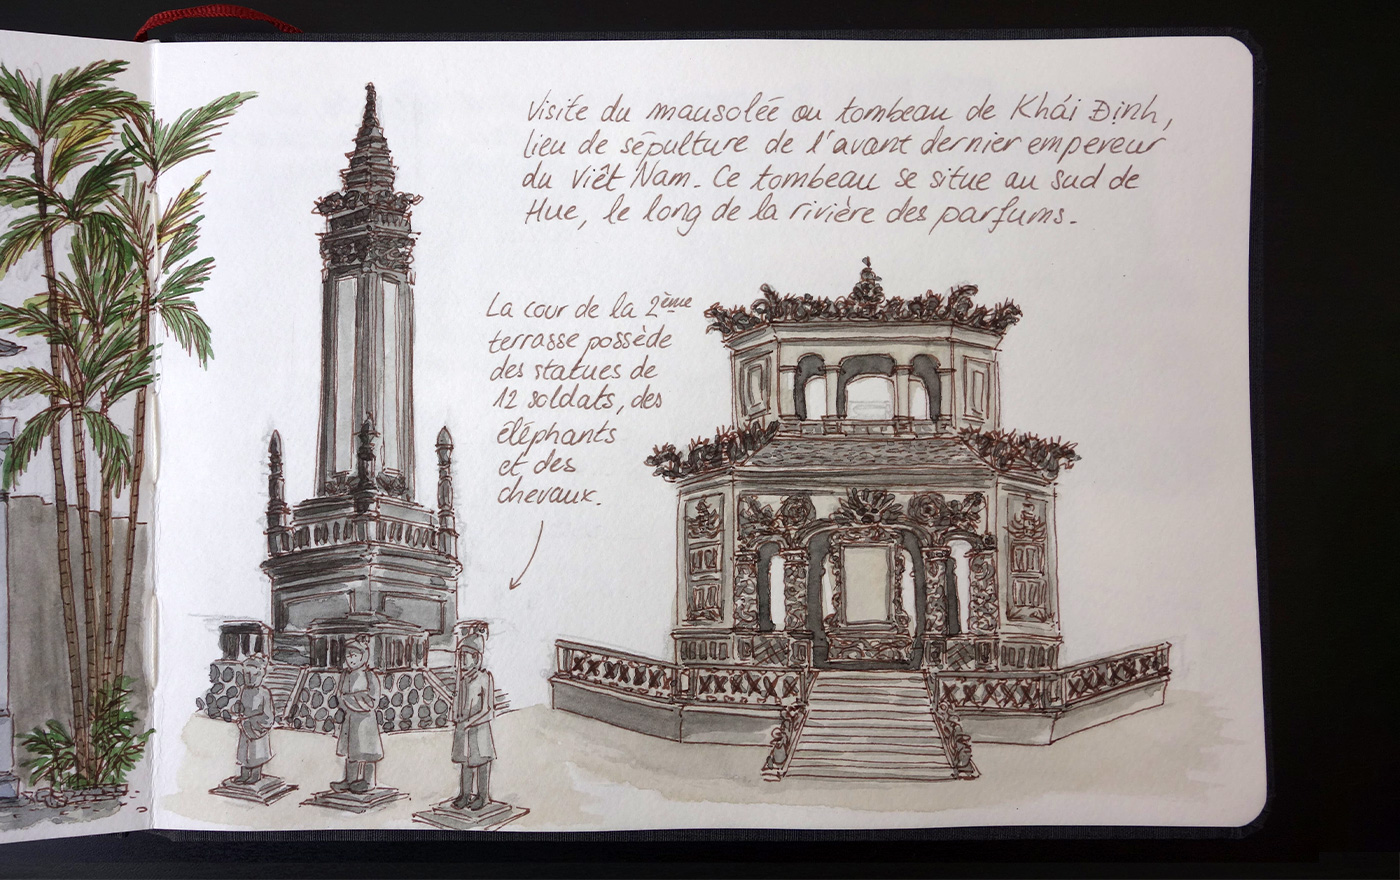 Visite du mausolée ou tombeau de Khái Định,
lieu de sépulture de l'avant dernier empereur
du Viêt Nam. Ce tombeau se situe au sud de
Hue, le long de la rivière des parfums.
La cour de la 2ème
terrasse possède
des statues de
12 soldats, des
éléphants
et des
chevaux.